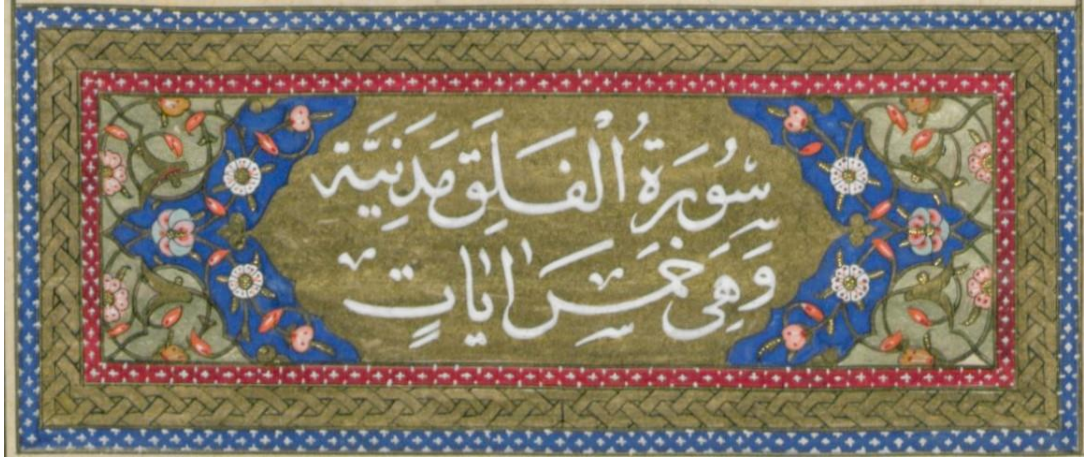 سُورَةُ الْفَلَقِ مَدَنِيَّة
وَهِيَ خَمْسُ اٰيَاتٍ